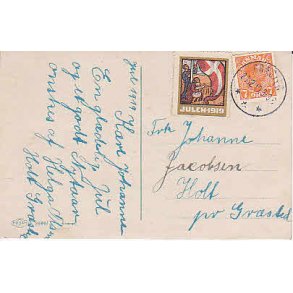 Jul 1919
Kære Johanne
En glædelig Jul
og et godt Nytaar
ønskes af Helga
Holt
JULEN 1919
Frk Johanne
Jacobsen
Holt
pr